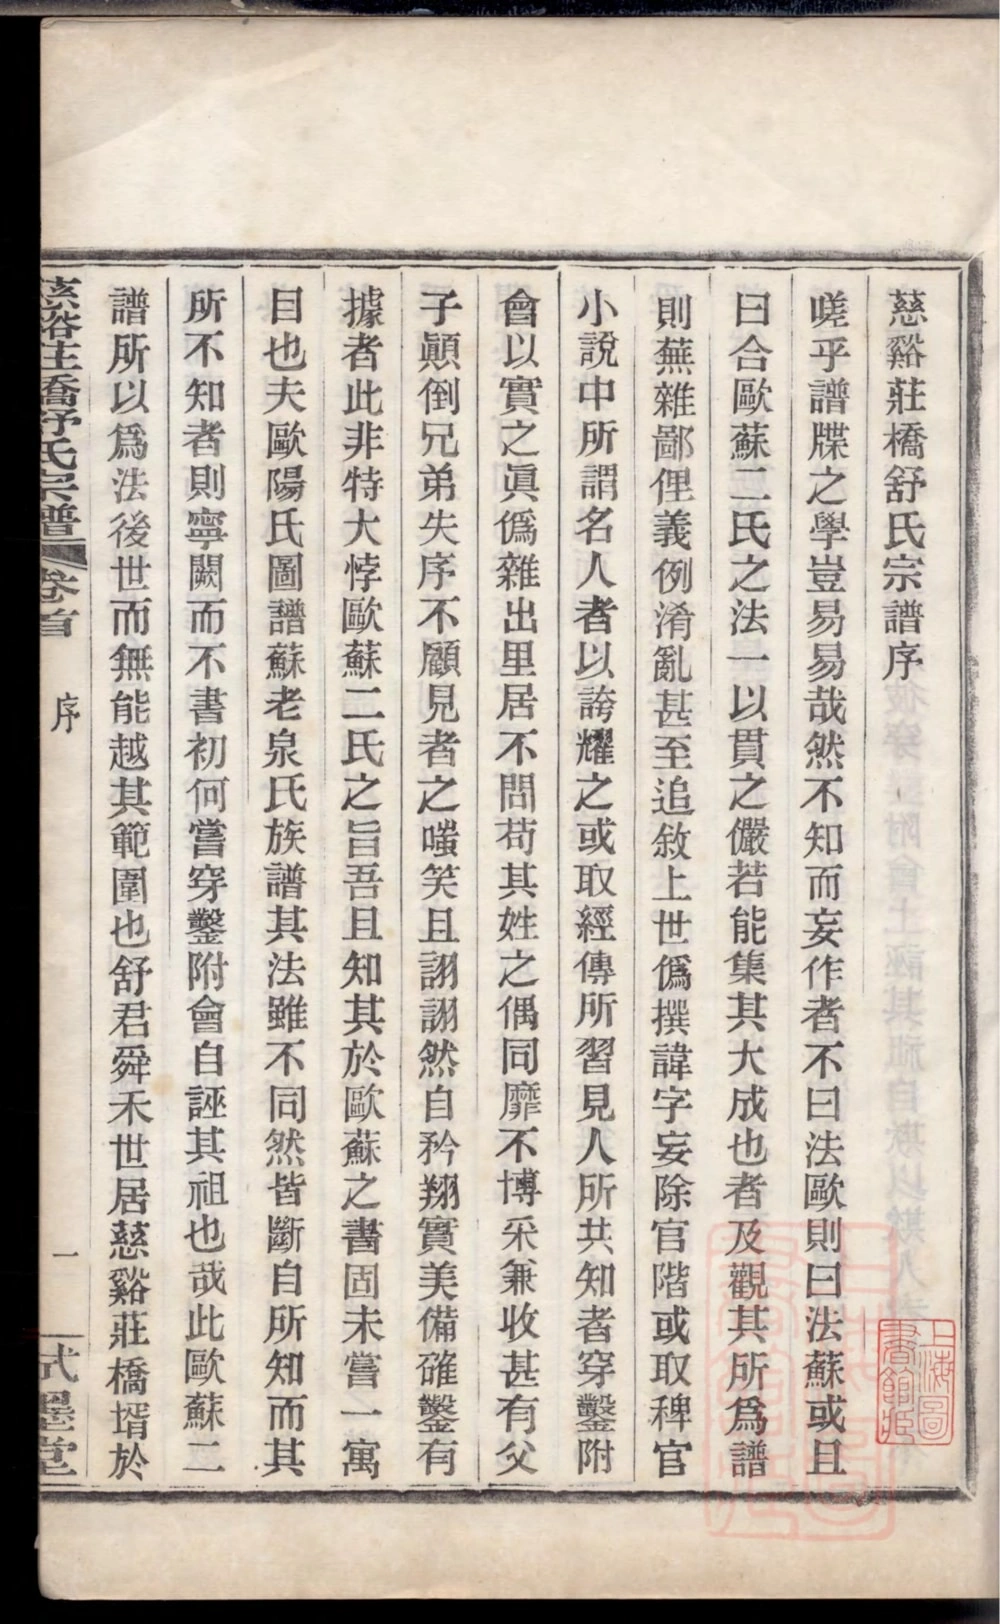 慈谿莊橋舒氏宗譜序
嗟乎譜牒之學豈易易哉然不知而妄作者不曰法歐則曰法蘇或且
曰合歐蘇二氏之法一以貫之儼若能集其大成也者及觀其所爲譜
則蕪雜鄙俚義例淆亂甚至追敘上世僞撰諱字妄除官階或取稗官
小說中所謂名人者以誇耀之或取經傳所習見人所共知者穿鑿附
會以實之眞僞雜出里居不問苟其姓之偶同靡不博采兼收甚有父
子顚倒兄弟失序不顧見者之嗤笑且詡詡然自矜翔實美備確鑿有
據者此非特大悖歐蘇二氏之旨吾且知其於歐蘇之書固未嘗一寓
目也夫歐陽氏圖譜蘇老泉氏族譜其法雖不同然皆斷自所知而其
所不知者則寧闕而不書初何嘗穿鑿附會自誣其祖也哉此歐蘇二
譜所以爲法後世而無能越其範圍也舒君舜禾世居慈谿莊橋壻於
慈谿莊橋舒氏宗譜 卷首 序 一 式墨堂
上海圖書館藏